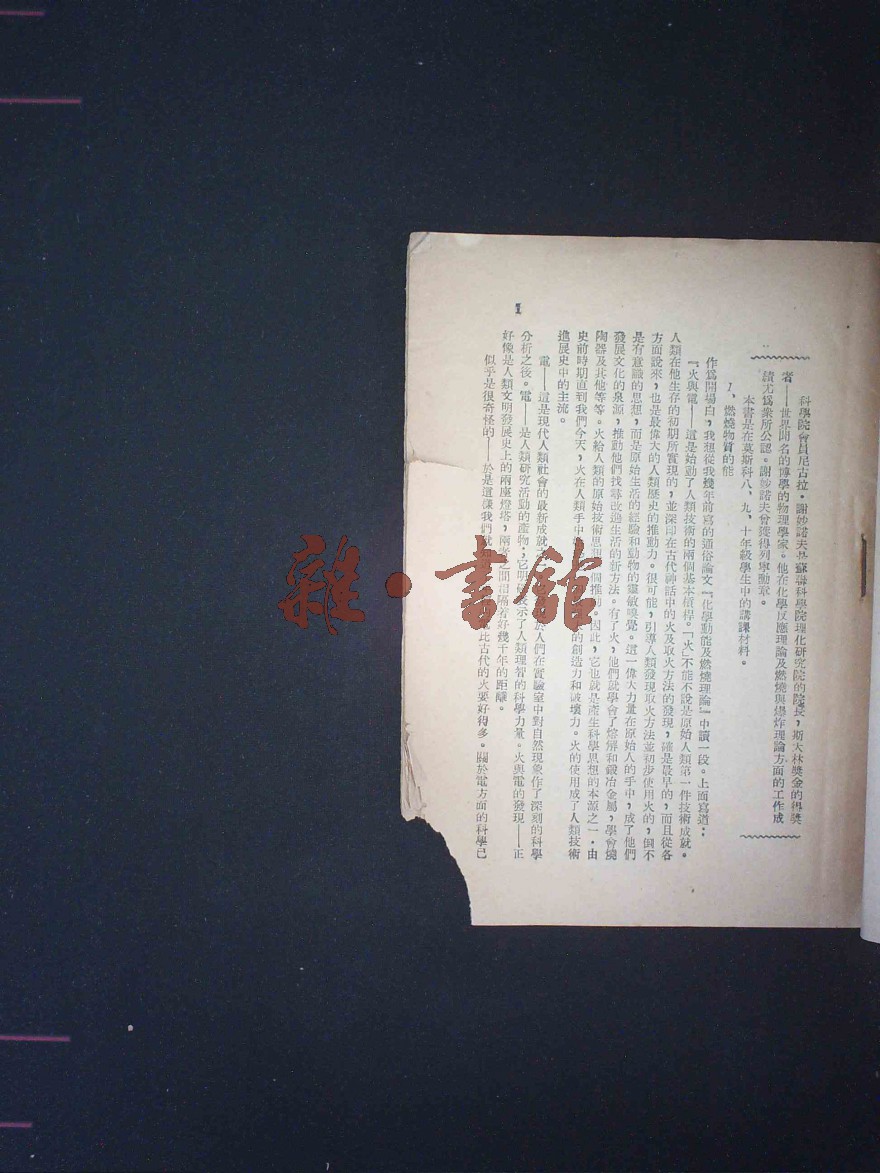 科學院會員尼古拉·謝妙諾夫是蘇聯科學院理化研究院的院長，斯大林獎金的得獎
者——世界聞名的博學的物理學家。他在化學反應理論及燃燒與爆炸理論方面的工作成
績尤爲衆所公認。謝妙諾夫曾獲得列寧勳章。
本書是在莫斯科八、九、十年級學生中的講課材料。
1、燃燒物質的能
作爲開場白，我想從我幾年前寫的通俗論文『化學動能及燃燒理論』中讀一段。上面寫道：
『火與電——這是始動了人類技術的兩個基本槓桿。「火」不能不說是原始人類第一件技術成就。
人類在他生存的初期所實現的，並深印在古代神話中的火及取火方法的發現，誰是最早的，而且從各
方面說來，也是最偉大的人類歷史的推動力。很可能，引導人類發現取火方法並初步使用火的，倒不
是有意識的思想，而是原始生活的經驗和動物的靈敏嗅覺。這一偉大力量在原始人的手中，成了他們
發展文化的泉源，推動他們找尋改進生活的新方法。有了火，他們就學會了熔解和鍛冶金屬，學會燒
陶器及其他等等。火給人類的原始技術思想 個推 。因此，它也就是產生科學思想的本源之一·由
史前時期直到我們今天，火在人類手中 的創造力和破壞力。火的使用成了人類技術
進展史中的主流。
電——這是現代人類社會的最新成就之 於人們在實驗室中對自然現象作了深刻的科學
分析之後。電——是人類研究活動的產物；它明 表示了人類理智的科學力量。火與電的發現——正
好像是人類文明發展史上的兩座燈塔，兩者之間相隔着好幾千年的距離。
似乎是很奇怪的——於是這樣我們就 比古代的火要好得多。關於電方面的科學已
1
雜·書館